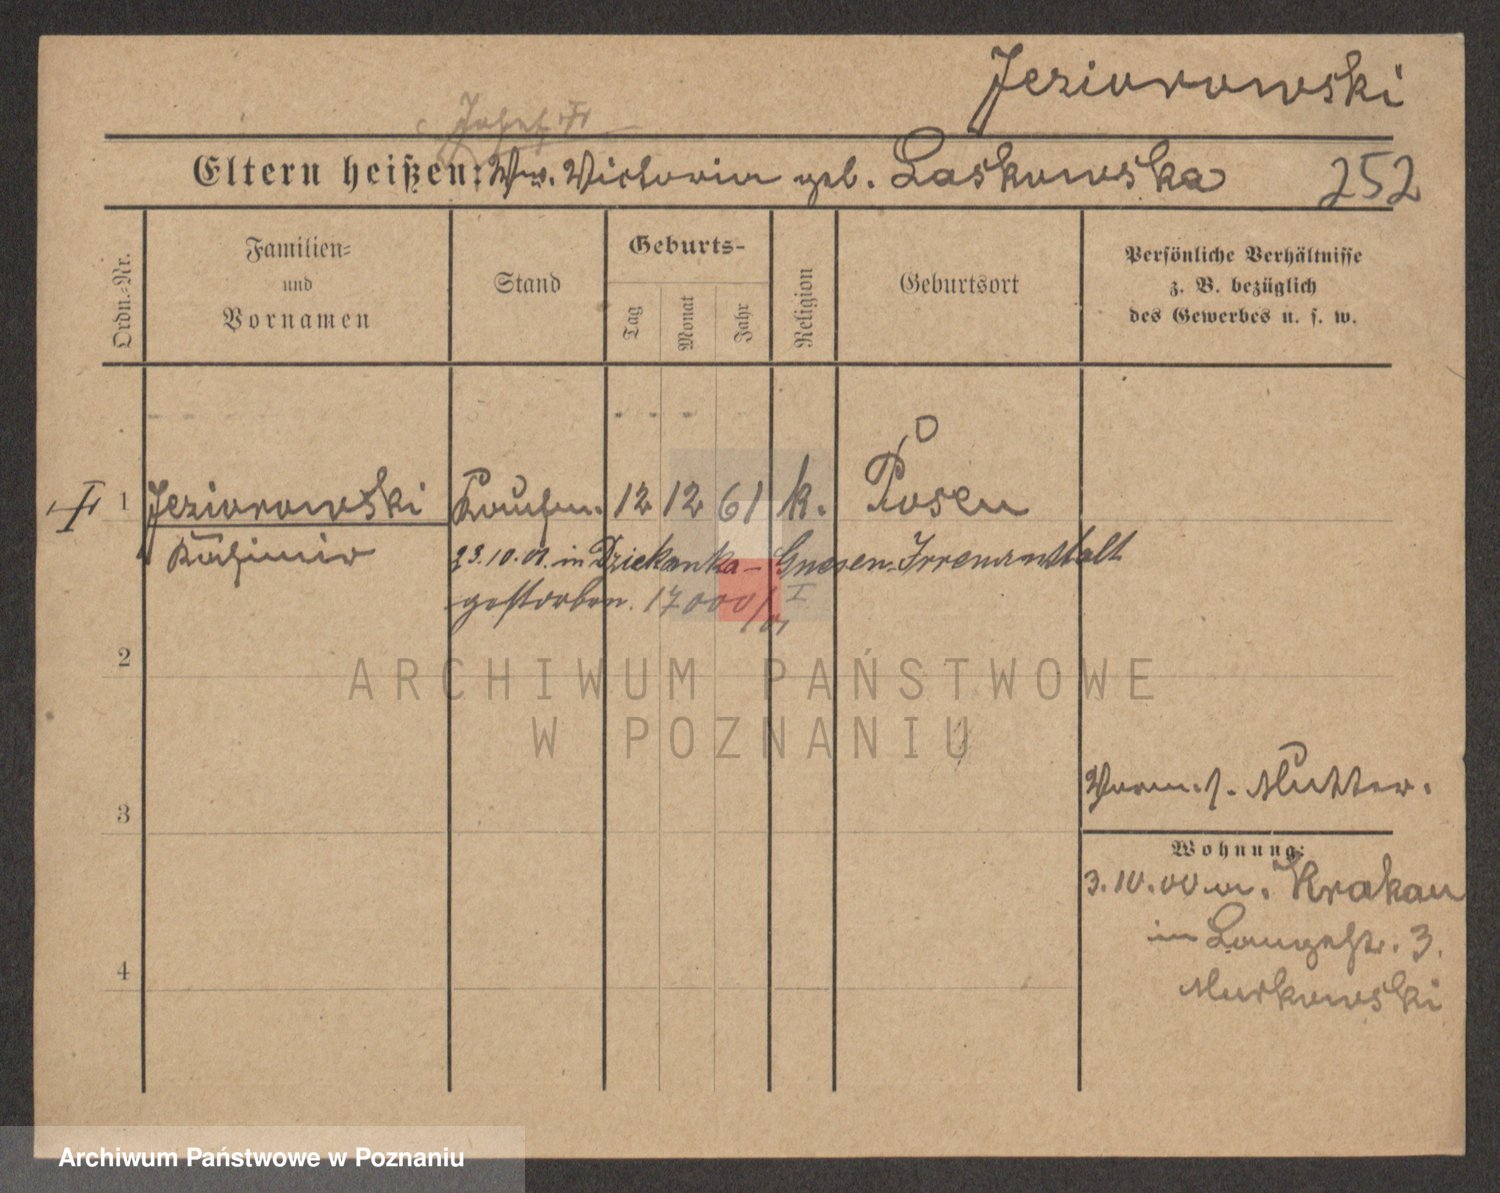 Jeziorowski
Josef
Eltern heißen: Ww. Victoria geb. Laskowska 252
Ordn.-Nr.
Familien-
und
Vornamen
Stand
Geburts-
Tag
Monat
Jahr
Religion
Geburtsort
Persönliche Verhältnisse
z. B. bezüglich
des Gewerbes u. s. w.
1 Jeziorowski Kaufm. 12 12 61 k. Posen
Kasimir 23.10.01. in Dziekanka - Gnesen Irrenanstalt
gestorben. 17000/I
/01
2
ARCHIWUM PAŃSTWOWE
W POZNANIU
Vorm. s. Mutter.
3
Wohnung:
3.10.00 n. Krakau
in Langestr. 3.
4
Murkowski
Archiwum Państwowe w Poznaniu